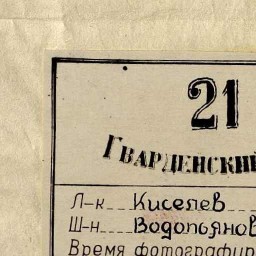 21
Гвардейский
Л-к Киселев
Ш-н Водопьянов
Время фотографир